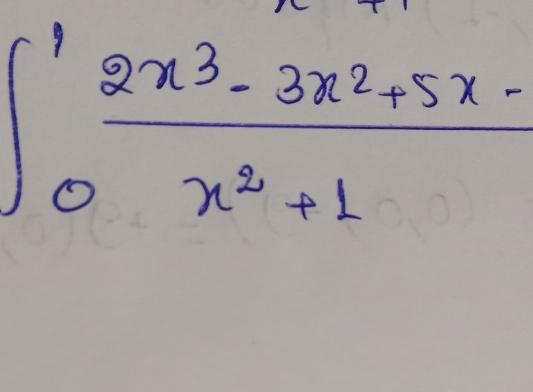 ∫₀¹ (2x³ - 3x² + 5x -
x² + 1